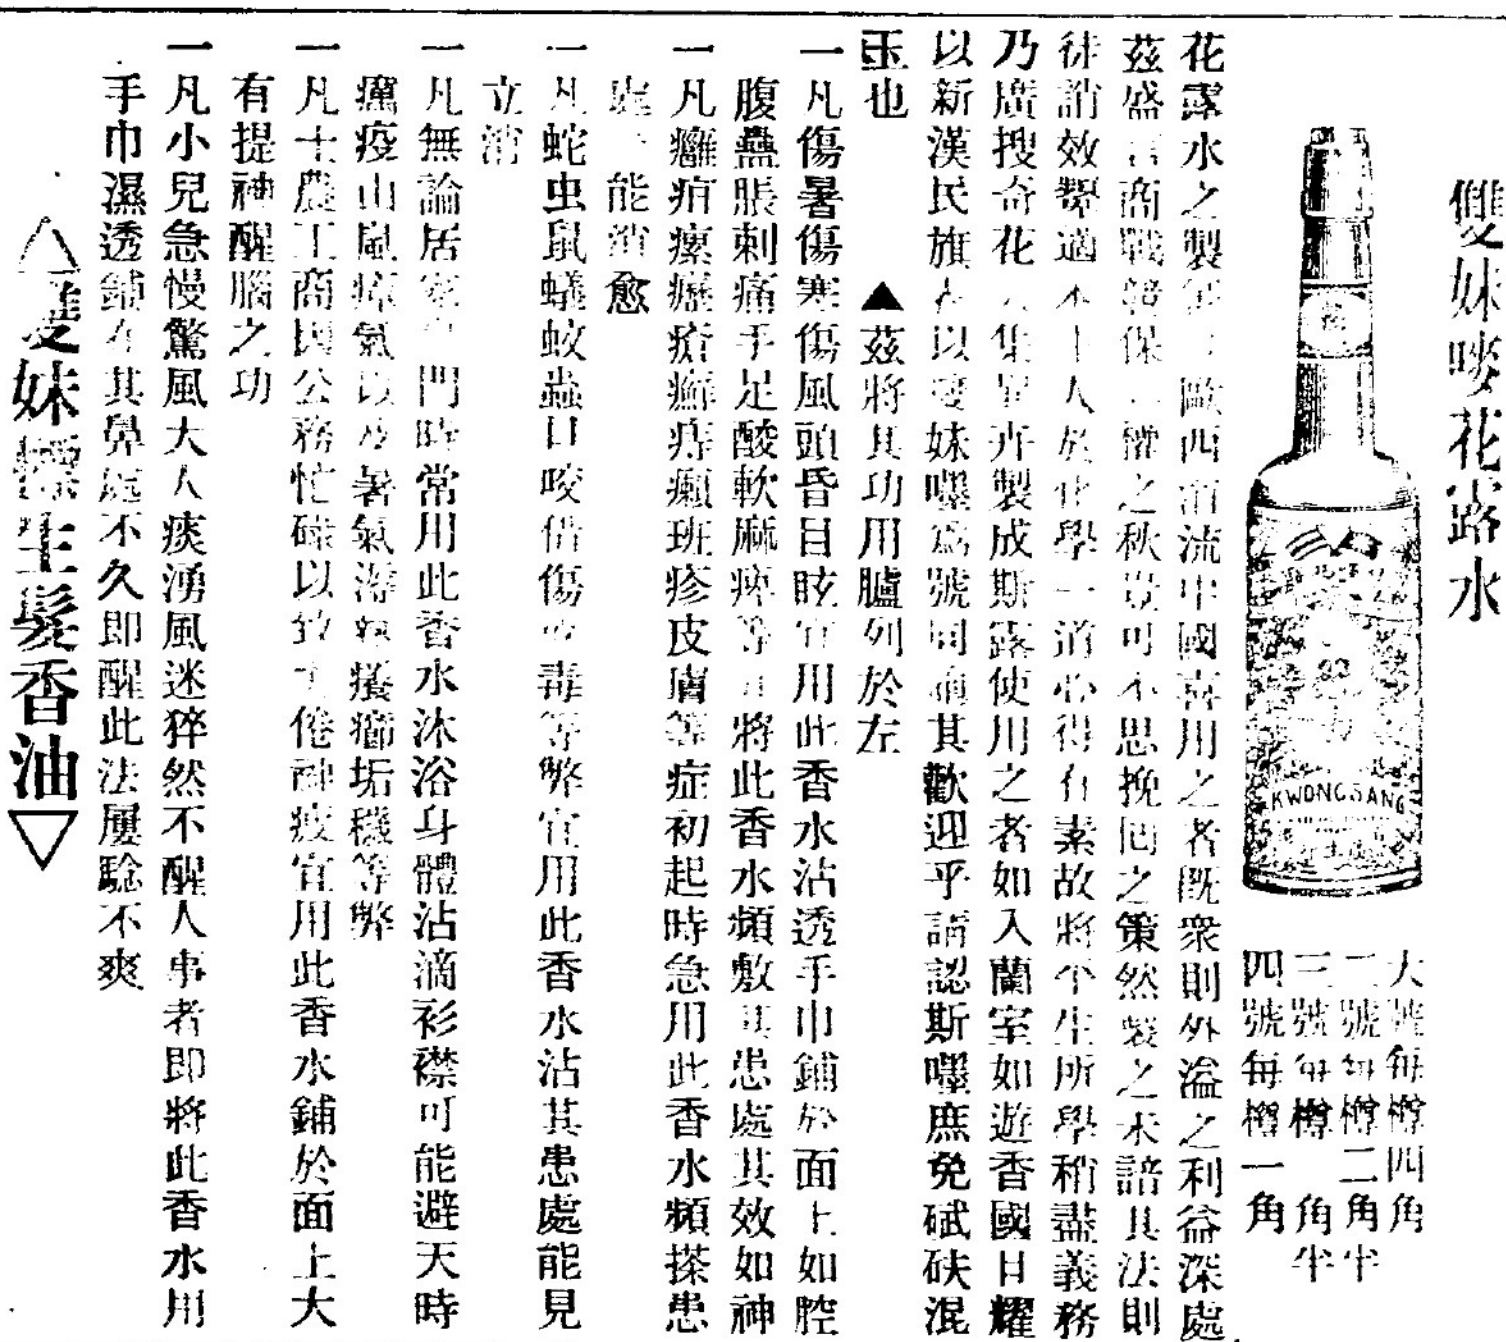 雙妹嘜花露水
KWONG SANG
大號每樽四角
二號每樽二角半
三號每樽 角半
四號每樽一角
花露水之製 歐西 流中國喜用之者既衆則外溢之利益深處
茲盛 商戰 保 權之秋豈可不思挽回之策然製之未諳其法則
徒誚效顰適 本 人於化學一道心得有素故將平生所學稍盡義務
乃廣搜奇花 集 卉製成斯露使用之者如入蘭室如遊香國日耀
以新漢民旗 以雙妹嘜爲號同 其歡迎乎請認斯嘜庶免碔砆混
玉也 ▲茲將其功用臚列於左
一凡傷暑傷寒傷風頭昏目眩宜用此香水沾透手巾鋪於面上如腔
腹蠱脹刺痛手足酸軟麻痺等 將此香水頻敷其患處其效如神
一凡癰疽瘰癧瘡癬痔癩班疹皮膚等症初起時急用此香水頻搽患
處 能消愈
一凡蛇虫鼠蟻蚊蟲口咬 傷 毒等弊宜用此香水沾其患處能見
立消
一凡無論居家 門時常用此香水沐浴身體沾滴衫襟可能避天時
癘疫山嵐瘴氣以及暑氣 癢癤垢穢等弊
一凡士農工商因公務忙碌以致 倦神疲宜用此香水鋪於面上大
有提神醒腦之功
一凡小兒急慢驚風大人痰湧風迷猝然不醒人事者即將此香水用
手巾濕透鋪在其鼻處不久即醒此法屢驗不爽
△雙妹嘜生髮香油▽